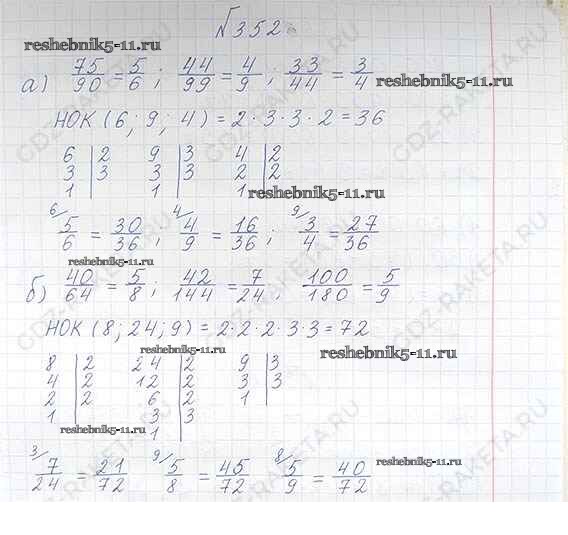 №352
reshebnik5-11.ru
а) 75/90 = 5/6 ; 44/99 = 4/9 ; 33/44 = 3/4 reshebnik5-11.ru
НОК (6; 9; 4) = 2·3·3·2 = 36
6|2 9|3 4|2
3|3 3|3 2|2
1| 1| 1| reshebnik5-11.ru
6/ 5/6 = 30/36 ; 4/ 4/9 = 16/36 ; 9/ 3/4 = 27/36
reshebnik5-11.ru
б) 40/64 = 5/8 ; 42/144 = 7/24 ; 100/180 = 5/9
НОК (8; 24; 9) = 2·2·2·3·3 = 72
reshebnik5-11.ru reshebnik5-11.ru
8|2 24|2 9|3
4|2 12|2 3|3
2|2 6|2 1|
1| 3|3
reshebnik5-11.ru 1|
3/ 7/24 = 21/72 9/ 5/8 = 45/72 8/ 5/9 = 40/72 reshebnik5-11.ru
GDZ-RAKETA.RU